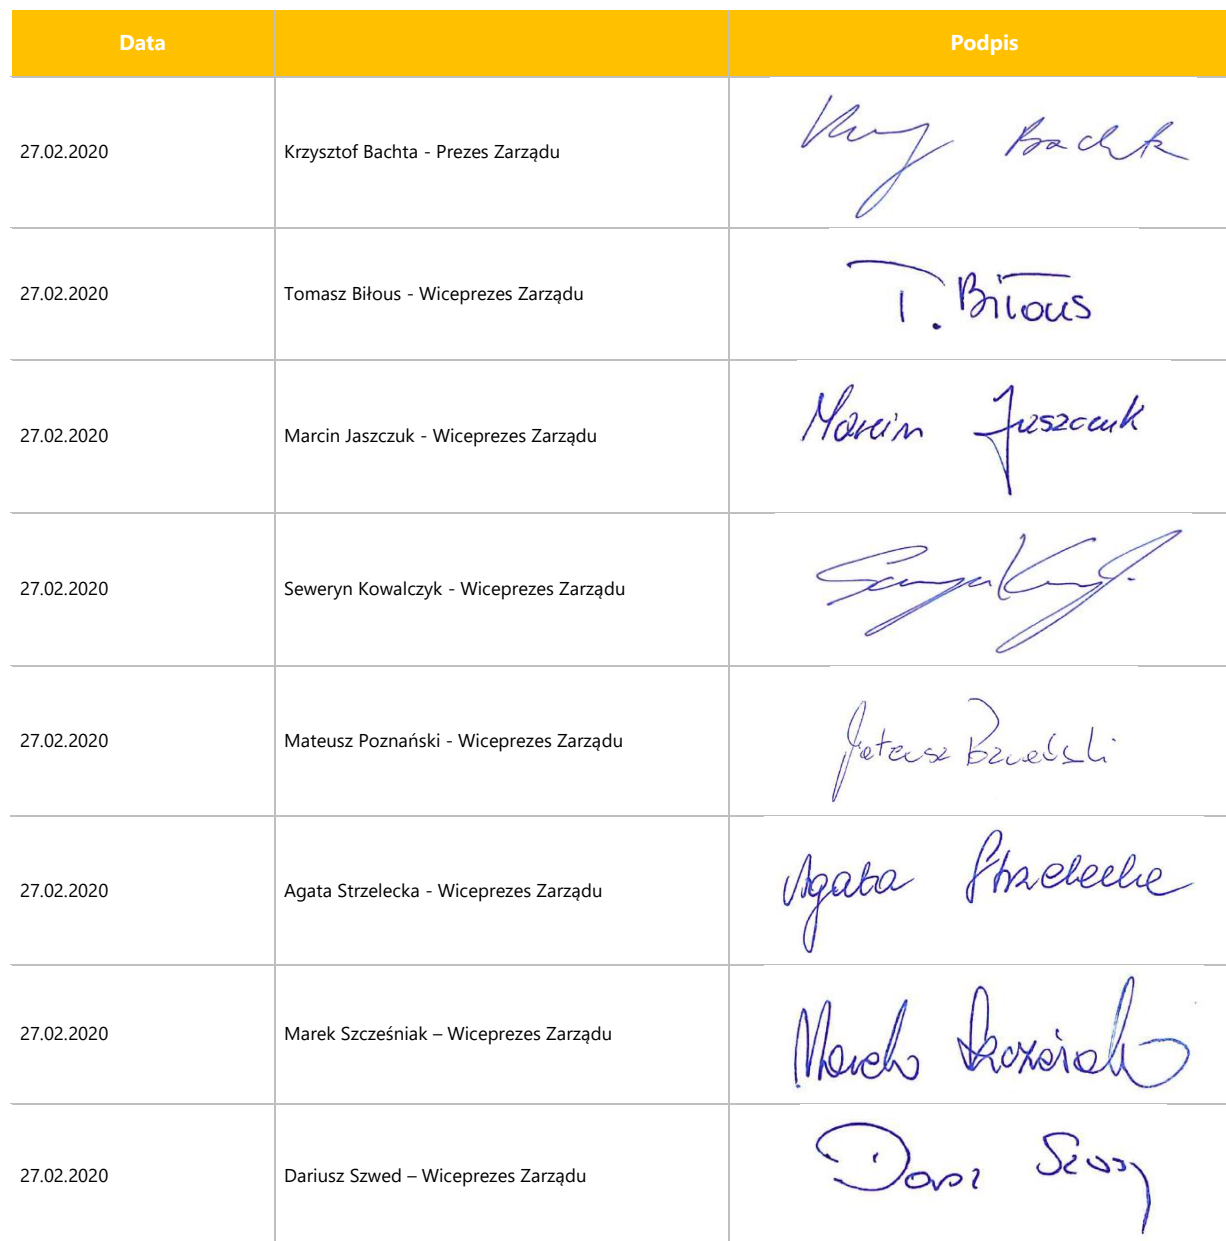 Data Podpis
27.02.2020 Krzysztof Bachta - Prezes Zarządu
27.02.2020 Tomasz Biłous - Wiceprezes Zarządu T. Biłous
27.02.2020 Marcin Jaszczuk - Wiceprezes Zarządu Marcin Jaszczuk
27.02.2020 Seweryn Kowalczyk - Wiceprezes Zarządu
27.02.2020 Mateusz Poznański - Wiceprezes Zarządu Mateusz Poznański
27.02.2020 Agata Strzelecka - Wiceprezes Zarządu Agata Strzelecka
27.02.2020 Marek Szcześniak – Wiceprezes Zarządu Marek Szcześniak
27.02.2020 Dariusz Szwed – Wiceprezes Zarządu